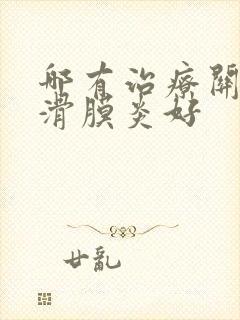 哪有治疗關
滑膜炎好
廿亂